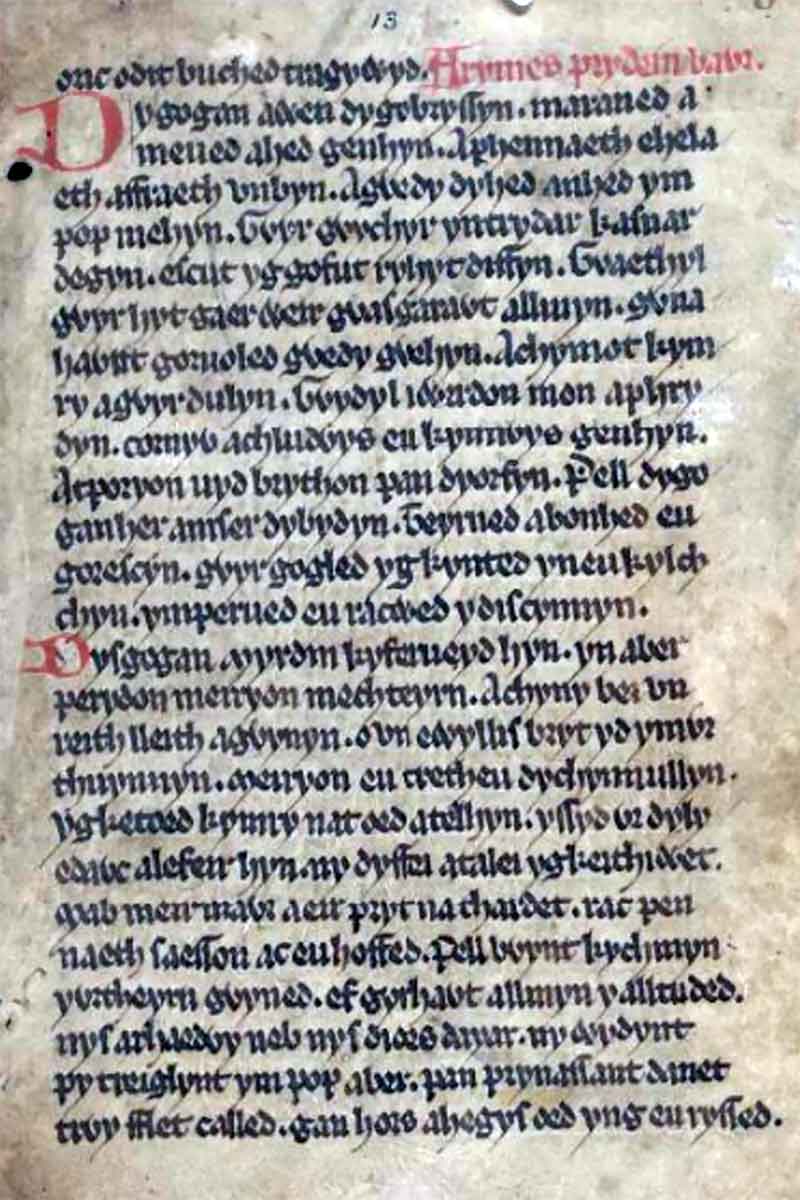 13
onc odit buched tragywyd. Arymes prydein vawr.
Dygogan awen dygobryssyn. maraned a
meued ahed genhyn. Aphennaeth ehela
eth affraeth vnbyn. Agwedy dyhed anhed ym
pop mehyn. Gwyr gwychyr yntrydar kasnar
degyn. escut yg gofut ryhyt diffyn. Gwaethyl
gwyr hyt gaer weir gwasgarawt allmyn. gwna
hawnt goruoled gwedy gwehyn. Achymot kym
ry agwyr dulyn. Gwydyl iwerdon mon aphry
dyn. cornyw achludwys eu kynnwys genhyn.
Atporyon uyd brython pan dyorfyn. Pell dygo
ganher amser dybydyn. Teyrned abonhed eu
gorescyn. gwyr gogled yg kynted yn eu kylch
chyn. ymperued eu racwed ydiscynnyn.
Dysgogan myrdin kyferuyd hyn. yn aber
perydon meiryon mechteyrn. Achyny bei vn
reith lleith agwynyn. o vn ewyllis bryt yd ymwr
thuynnyn. meiryon eu tretheu dychynnullyn.
Yg ketoed kymry nat oed atellhyn. yssyd wr dyly
edawc alefeir hyn. ny dyffei atalei yg keithiwet.
mab meir mawr aeir pryt na thardet. rac pen
naeth saesson ac eu hoffed. Pell bwynt kychmyn
y wrtheyrn gwyned. ef gyrhawt allmyn y alltuded.
nys arhaedwy neb nys dioes dayar. ny wydynt
py treiglynt ym pop aber. pan prynassant danet
trwy fflet called. gan hors ahegys oed yng eu ryssed.